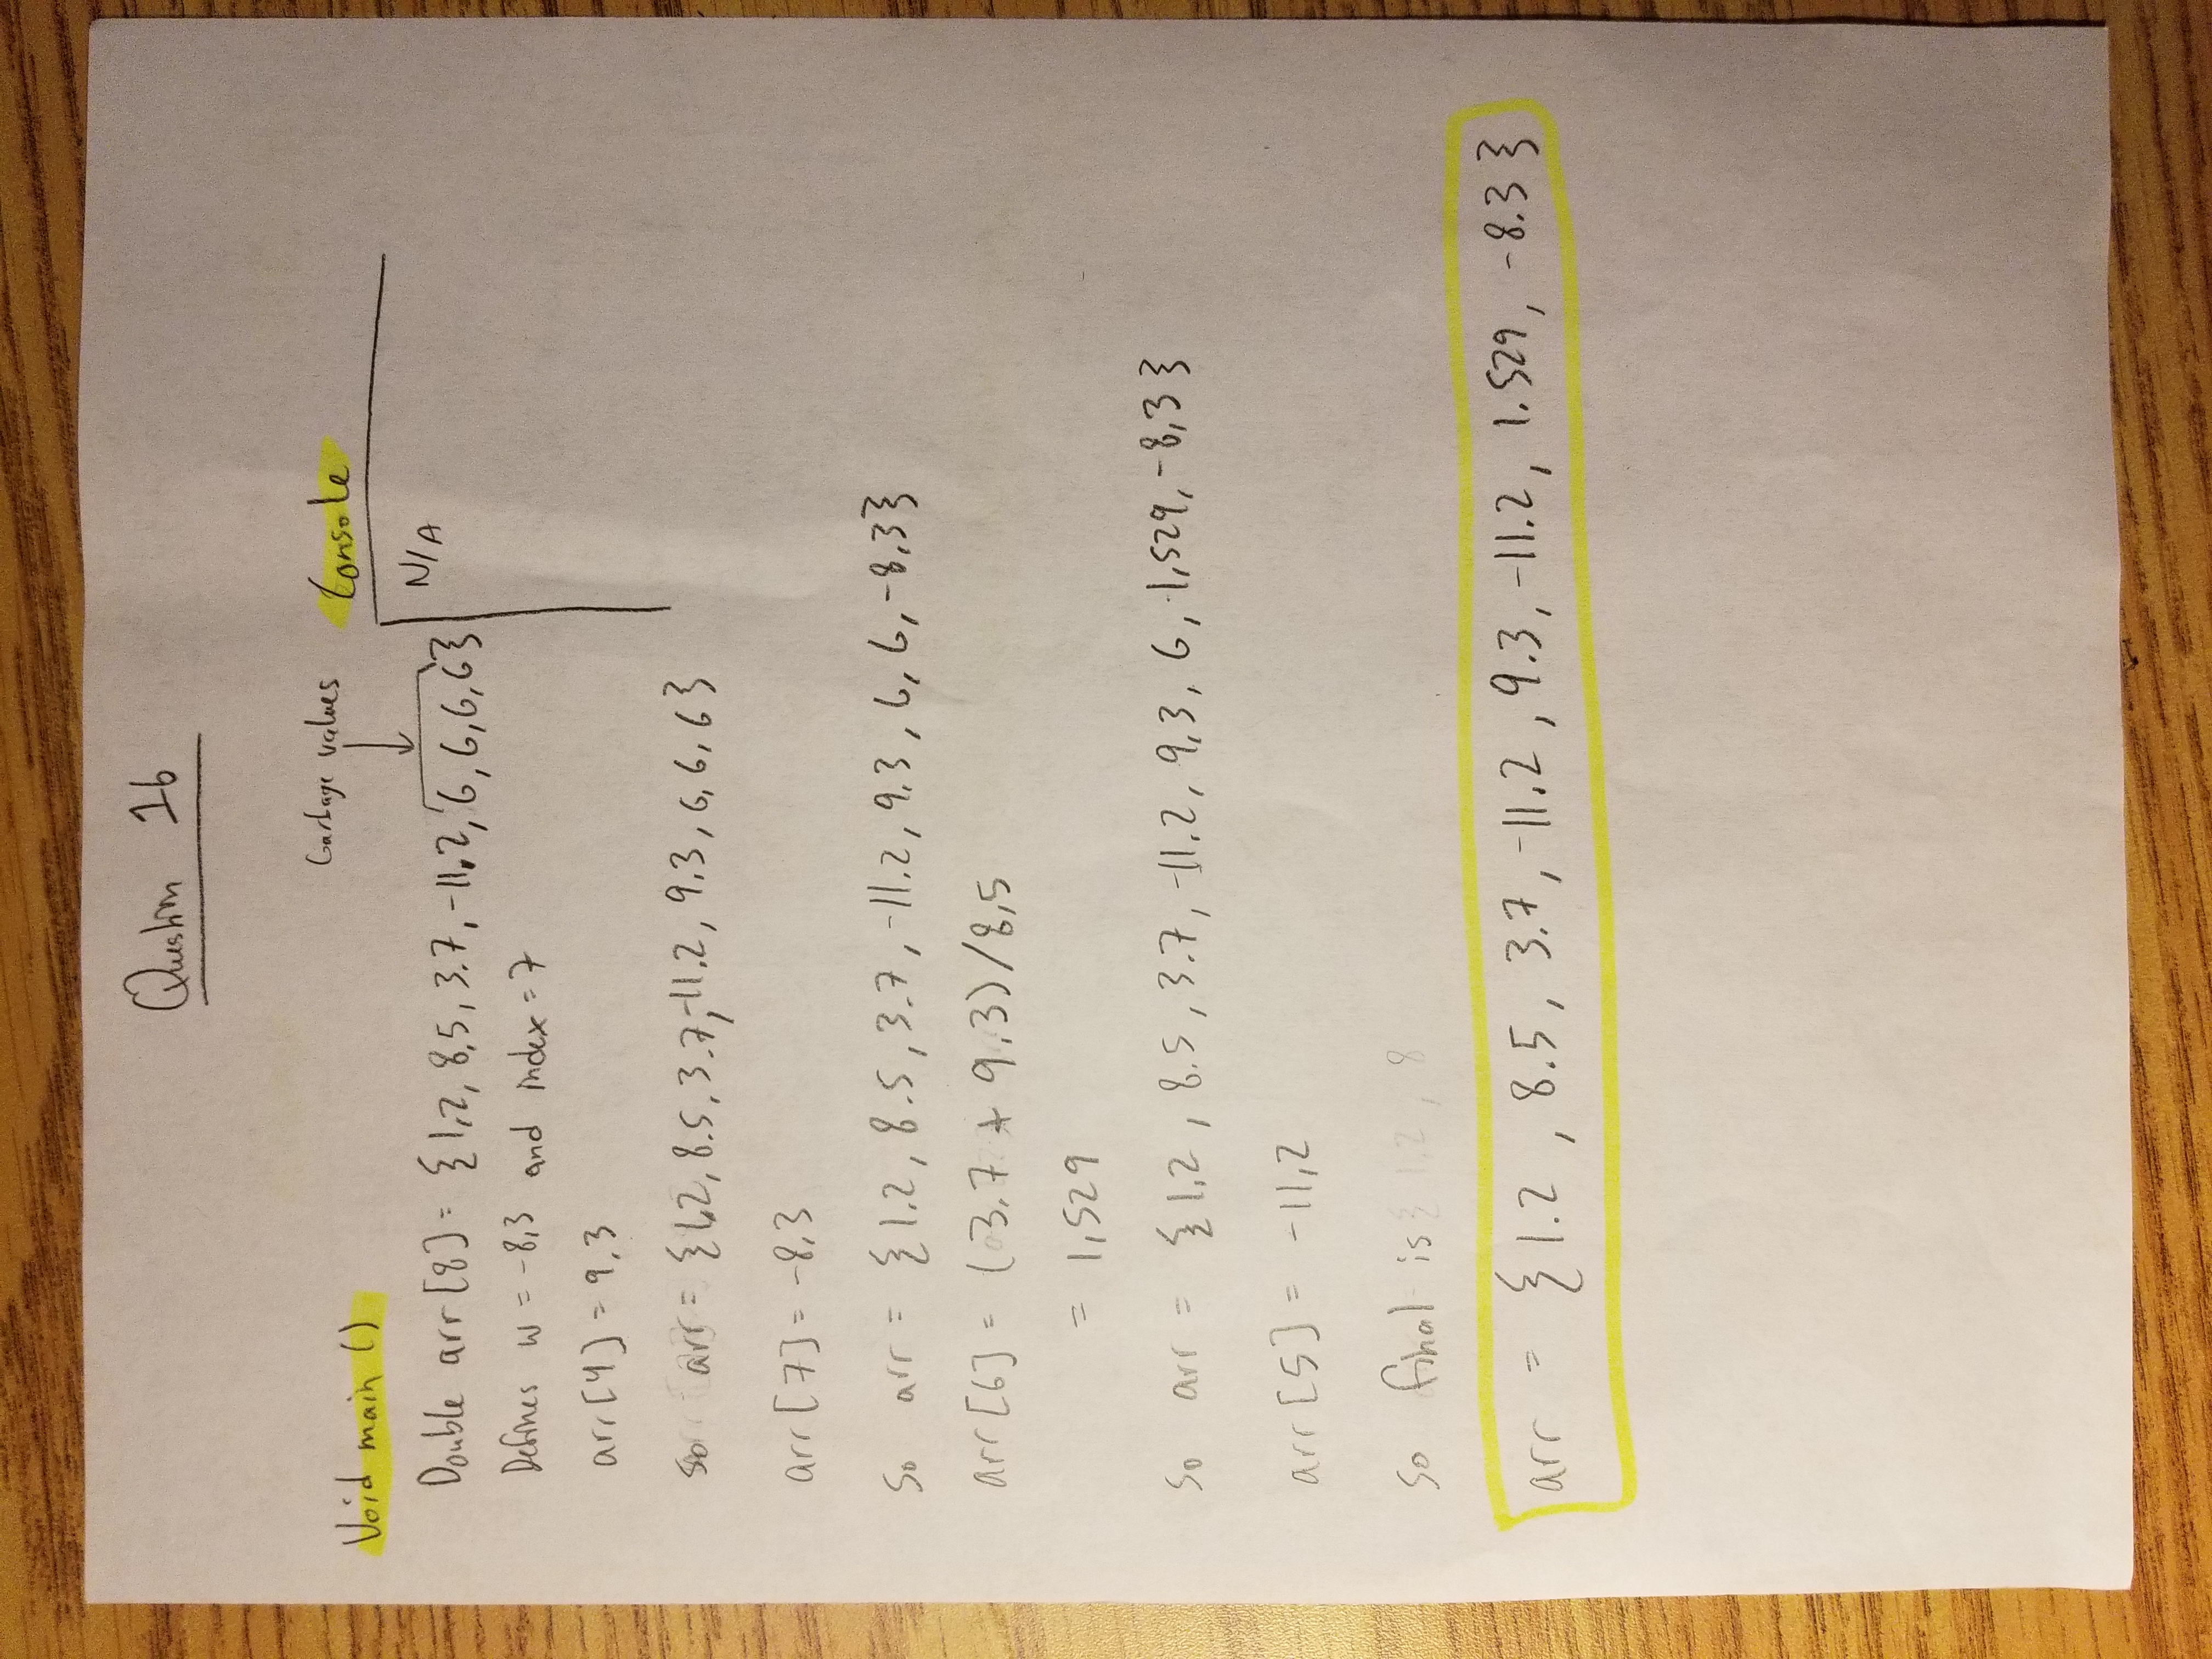 Question 1b
Garbage values
Void main ()
Console
Double arr[8] = {1.2, 8.5, 3.7, -11.2, G, G, G, G}
N/A
Defines w = -8.3 and index = 7
arr[4] = 9.3
so arr = {1.2, 8.5, 3.7, -11.2, 9.3, G, G, G}
arr[7] = -8.3
so arr = {1.2, 8.5, 3.7, -11.2, 9.3, G, G, -8.3}
arr[6] = (3.7 + 9.3)/8.5
= 1.529
so arr = {1.2, 8.5, 3.7, -11.2, 9.3, G, 1.529, -8.3}
arr[5] = -11.2
so final is {1.2, 8
arr = {1.2, 8.5, 3.7, -11.2, 9.3, -11.2, 1.529, -8.3}